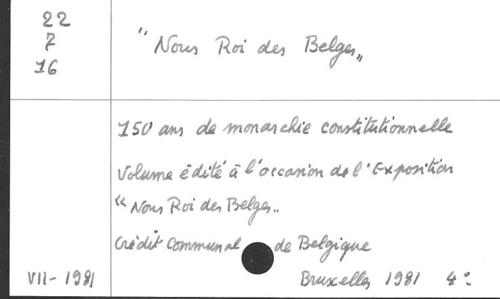 22
7
16
" Nous Roi des Belges "
150 ans de monarchie constitutionnelle
Volume édité à l'occasion de l'Exposition
" Nous Roi des Belges "
Crédit Communal de Belgique
VII - 1981
Bruxelles 1981 4°